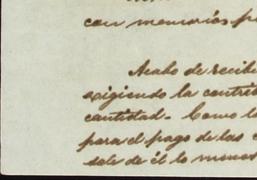 con memorias p
Acabo de recibi
exigiendo la contri
cantidad. Como l
para el pago de las c
sale de él lo menos